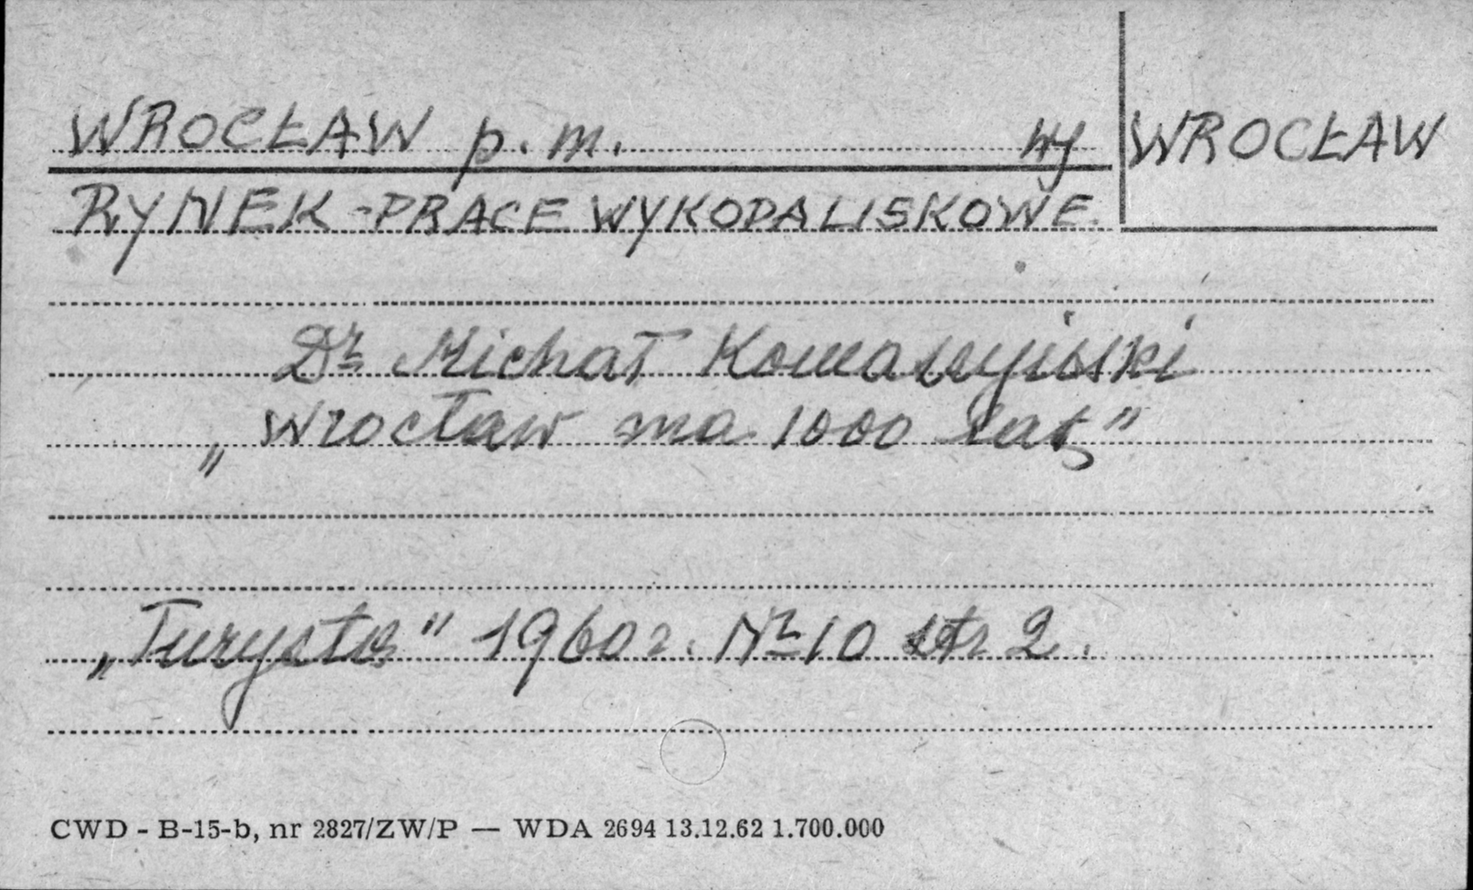 WROCŁAW p.m. wy WROCŁAW
RYNEK - PRACE WYKOPALISKOWE.
Dr Michał
„Wrocław ma 1000 lat”
„Turysta” 1960 r. Nr 10 str 2.
CWD - B-15-b, nr 2827/ZW/P — WDA 2694 13.12.62 1.700.000